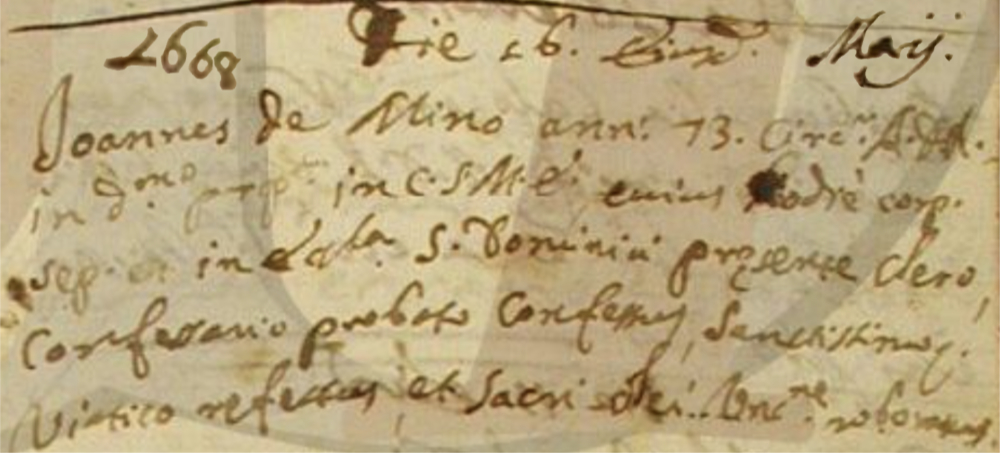 1668 Die 26. Eiusd. Maij.
Joannes de Mino ann: 73. Circ.
in d.mo in C. S. M. E. cuius hodie corp.
sep. in S. Dominici presente clero,
Confessario probato Confessus, Sanctissimoq.
Viatico refectus, et Sacri olei Unc.ne roboratus.